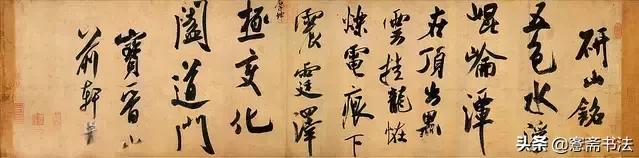 研山銘
五色水浮
崐崘潭
在頂出黑
雲挂龍怪
爍電痕下
震霆澤
極變化
闔道門
寶晉山
前軒書
头条 @愙斋书法